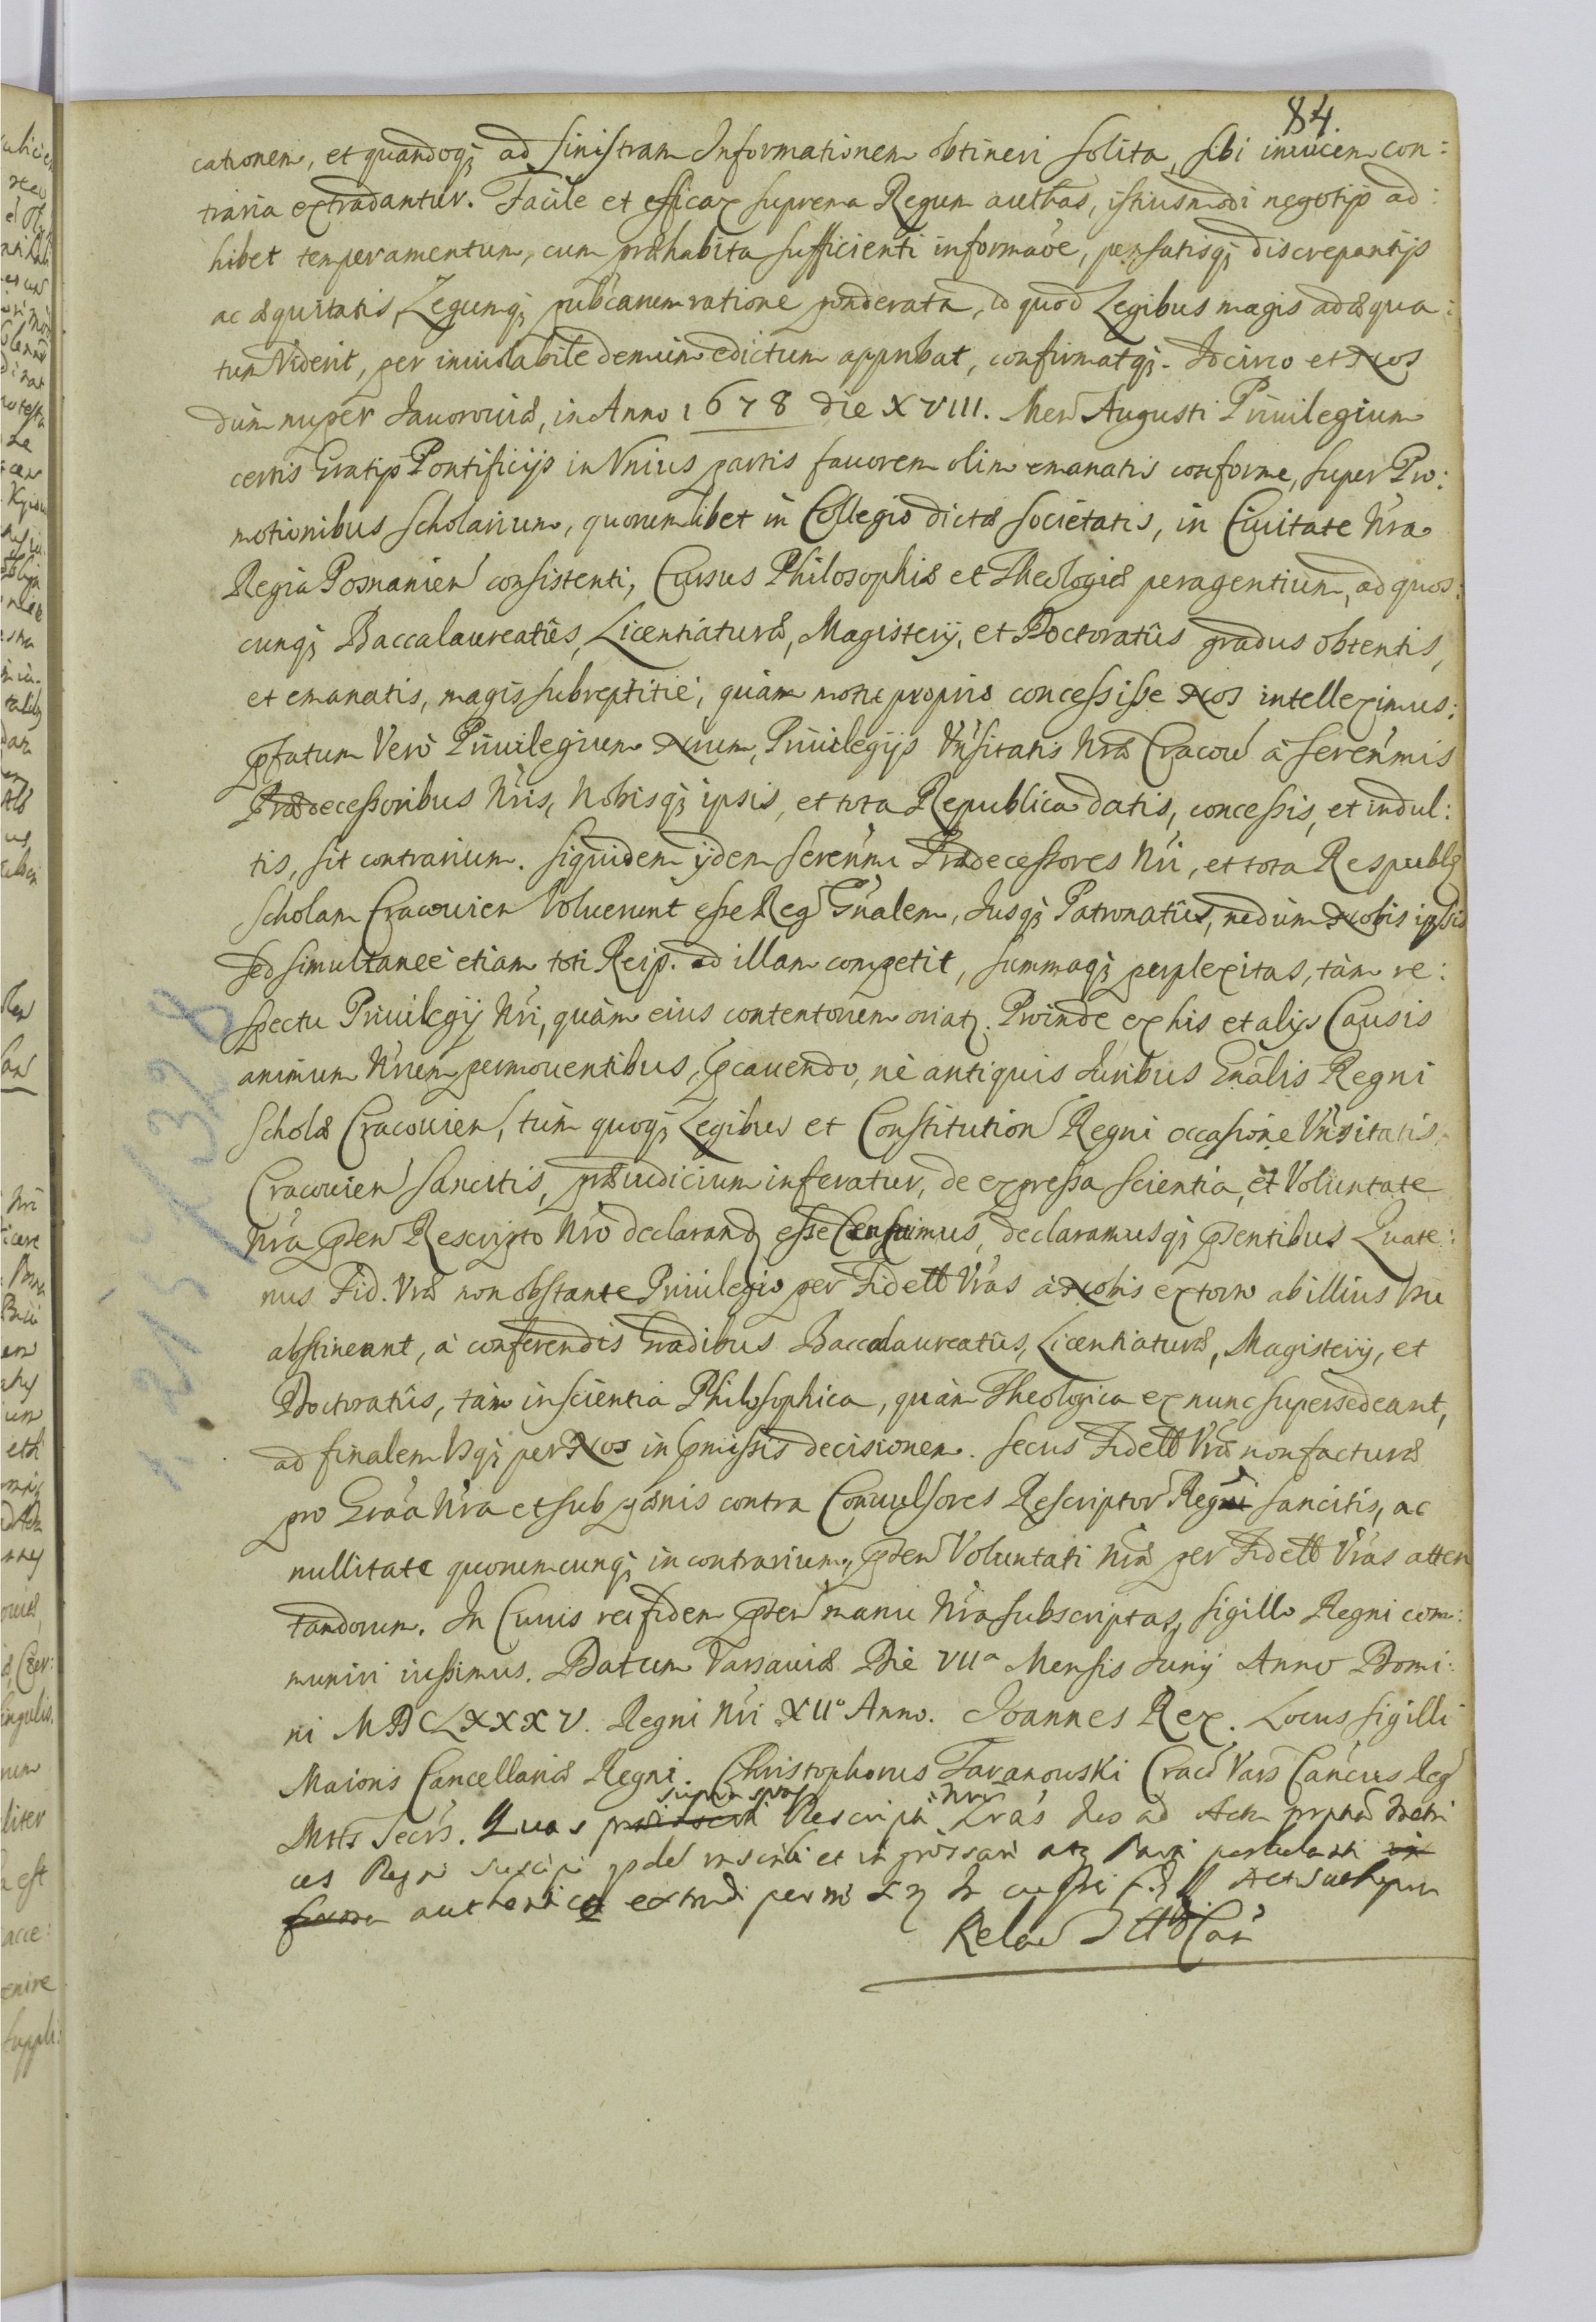 84.
cationem, et quandoq; ad sinistram Informationem obtineri solita, sibi inuicem con:
traria extradantur. Facile et efficax suprema Regum authas, istiusmodi negotijs ad:
hibet temperamentum, cum præhabita sufficienti informaõe, pensatisq; discrepantijs
ac æquitatis, Legumq; pubcarum ratione ponderata, id quod Legibus magis adæqua:
tum Viderit, per inuiolabile demum edictum approbat, confirmatq;. Idcirco et Nos
dum nuper Iauorouiæ, in Anno 1678 die XVIII. Men Augusti Priuilegium
certis Gratijs Pontificijs in Vnius partis fauorem olim emanatis conforme, super Pro:
motionibus scholarium, quorumlibet in Collegio dictæ societatis, in Ciuitate Nra
Regia Posnanien consistenti, Cursus Philosophiæ et Theologiæ peragentium, ad quos:
cunq; Baccalaureatûs, Licentiaturæ, Magisterij, et Doctoratûs gradus obtentis,
et emanatis, magis subreptitiè, quàm motu proprio concessisse Nos intelleximus:
pfatum Verò Priuilegium Nrum, Priuilegijs Vnsitatis Nræ Cracou à Serenmis
Prædecessoribus Nris, Nobisq; ipsis, et tota Republica datis, concessis, et indul:
tis, sit contrarium. siquidem ijdem serenmi Prædecessores Nri, et tota Respublq
scholam Cracouien Voluerunt esse Reg Gnalem, Iusq; Patronatûs, nedum Nobis ipsis
sed simultaneè etiam toti Reip. ad illam competit, summaq; perplexitas, tàm re:
spectu Priuilegij Nri, quàm eius contentorum oriatz. Proinde ex his et alijs Causis
animum Nrum permouentibus, pcauendo, nè antiquis Iuribus Gnalis Regni
scholæ Cracouien, tùm quoq; Legibus et Constitution Regni occasione Vnsitatis
Cracouien sancitis, præiudicium inferatur, de expressa scientia, et Voluntate
Nra pnen Rescripto Nro declarand esse Censuimus, declaramusq; pntibus Quate:
nus Fid. Vræ non obstante Priuilegio per Fidett Vras à Nobis extorto ab illius Vsu
abstineant, à conferendis Gradibus Baccalaureatûs, Licentiaturæ, Magisterij, et
Doctoratûs, tàm in scientia Philosophica, quàm Theologica ex nunc supersedeant,
ad finalem Vsq; per Nos in pmissis decisionem. secus Fidett Vræ non facturæ
pro Graa Nra et sub pænis contra Conuulsores Rescriptor Regni sancitis, ac
nullitate quorumcunq; in contrarium, pnen Voluntati Nræ per Fidett Vras atten
tandorum. In Cuius rei fidem pnen manu Nra subscriptas, sigillo Regni com:
muniri iussimus. Datum Varsauiæ Die VIIa Mensis Iunij Anno Domi:
ni MDCLXXXV. Regni Nri XIIo Anno. Joannes Rex. Locus sigilli
Maioris Cancellariæ Regni. Christophorus Taranowski Crac Vars Cancus Reg
Mtts Secrs. Quas Rescripti Nri Lras Nos ad Acta
ces Regni suscipi inscribi et ingrossari atq
authentice extradi
Relao Can